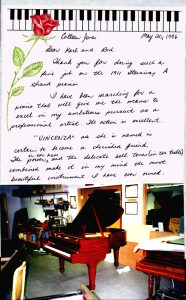 Colleen Jones May 20, 1996
Dear Karl and Rod
Thank you for doing such a
fine job on the 1911 Steinway A
Grand piano.
I have been searching for a
piano that will give me the means to
excell in my ambitious pursuits as a
professional artist. The action is excellent.
"VINCENZA" as she is named is
certain to become a decided friend.
The power, and the delicate soft tones
combined make it in my mind the most
beautiful instrument I have ever owned.